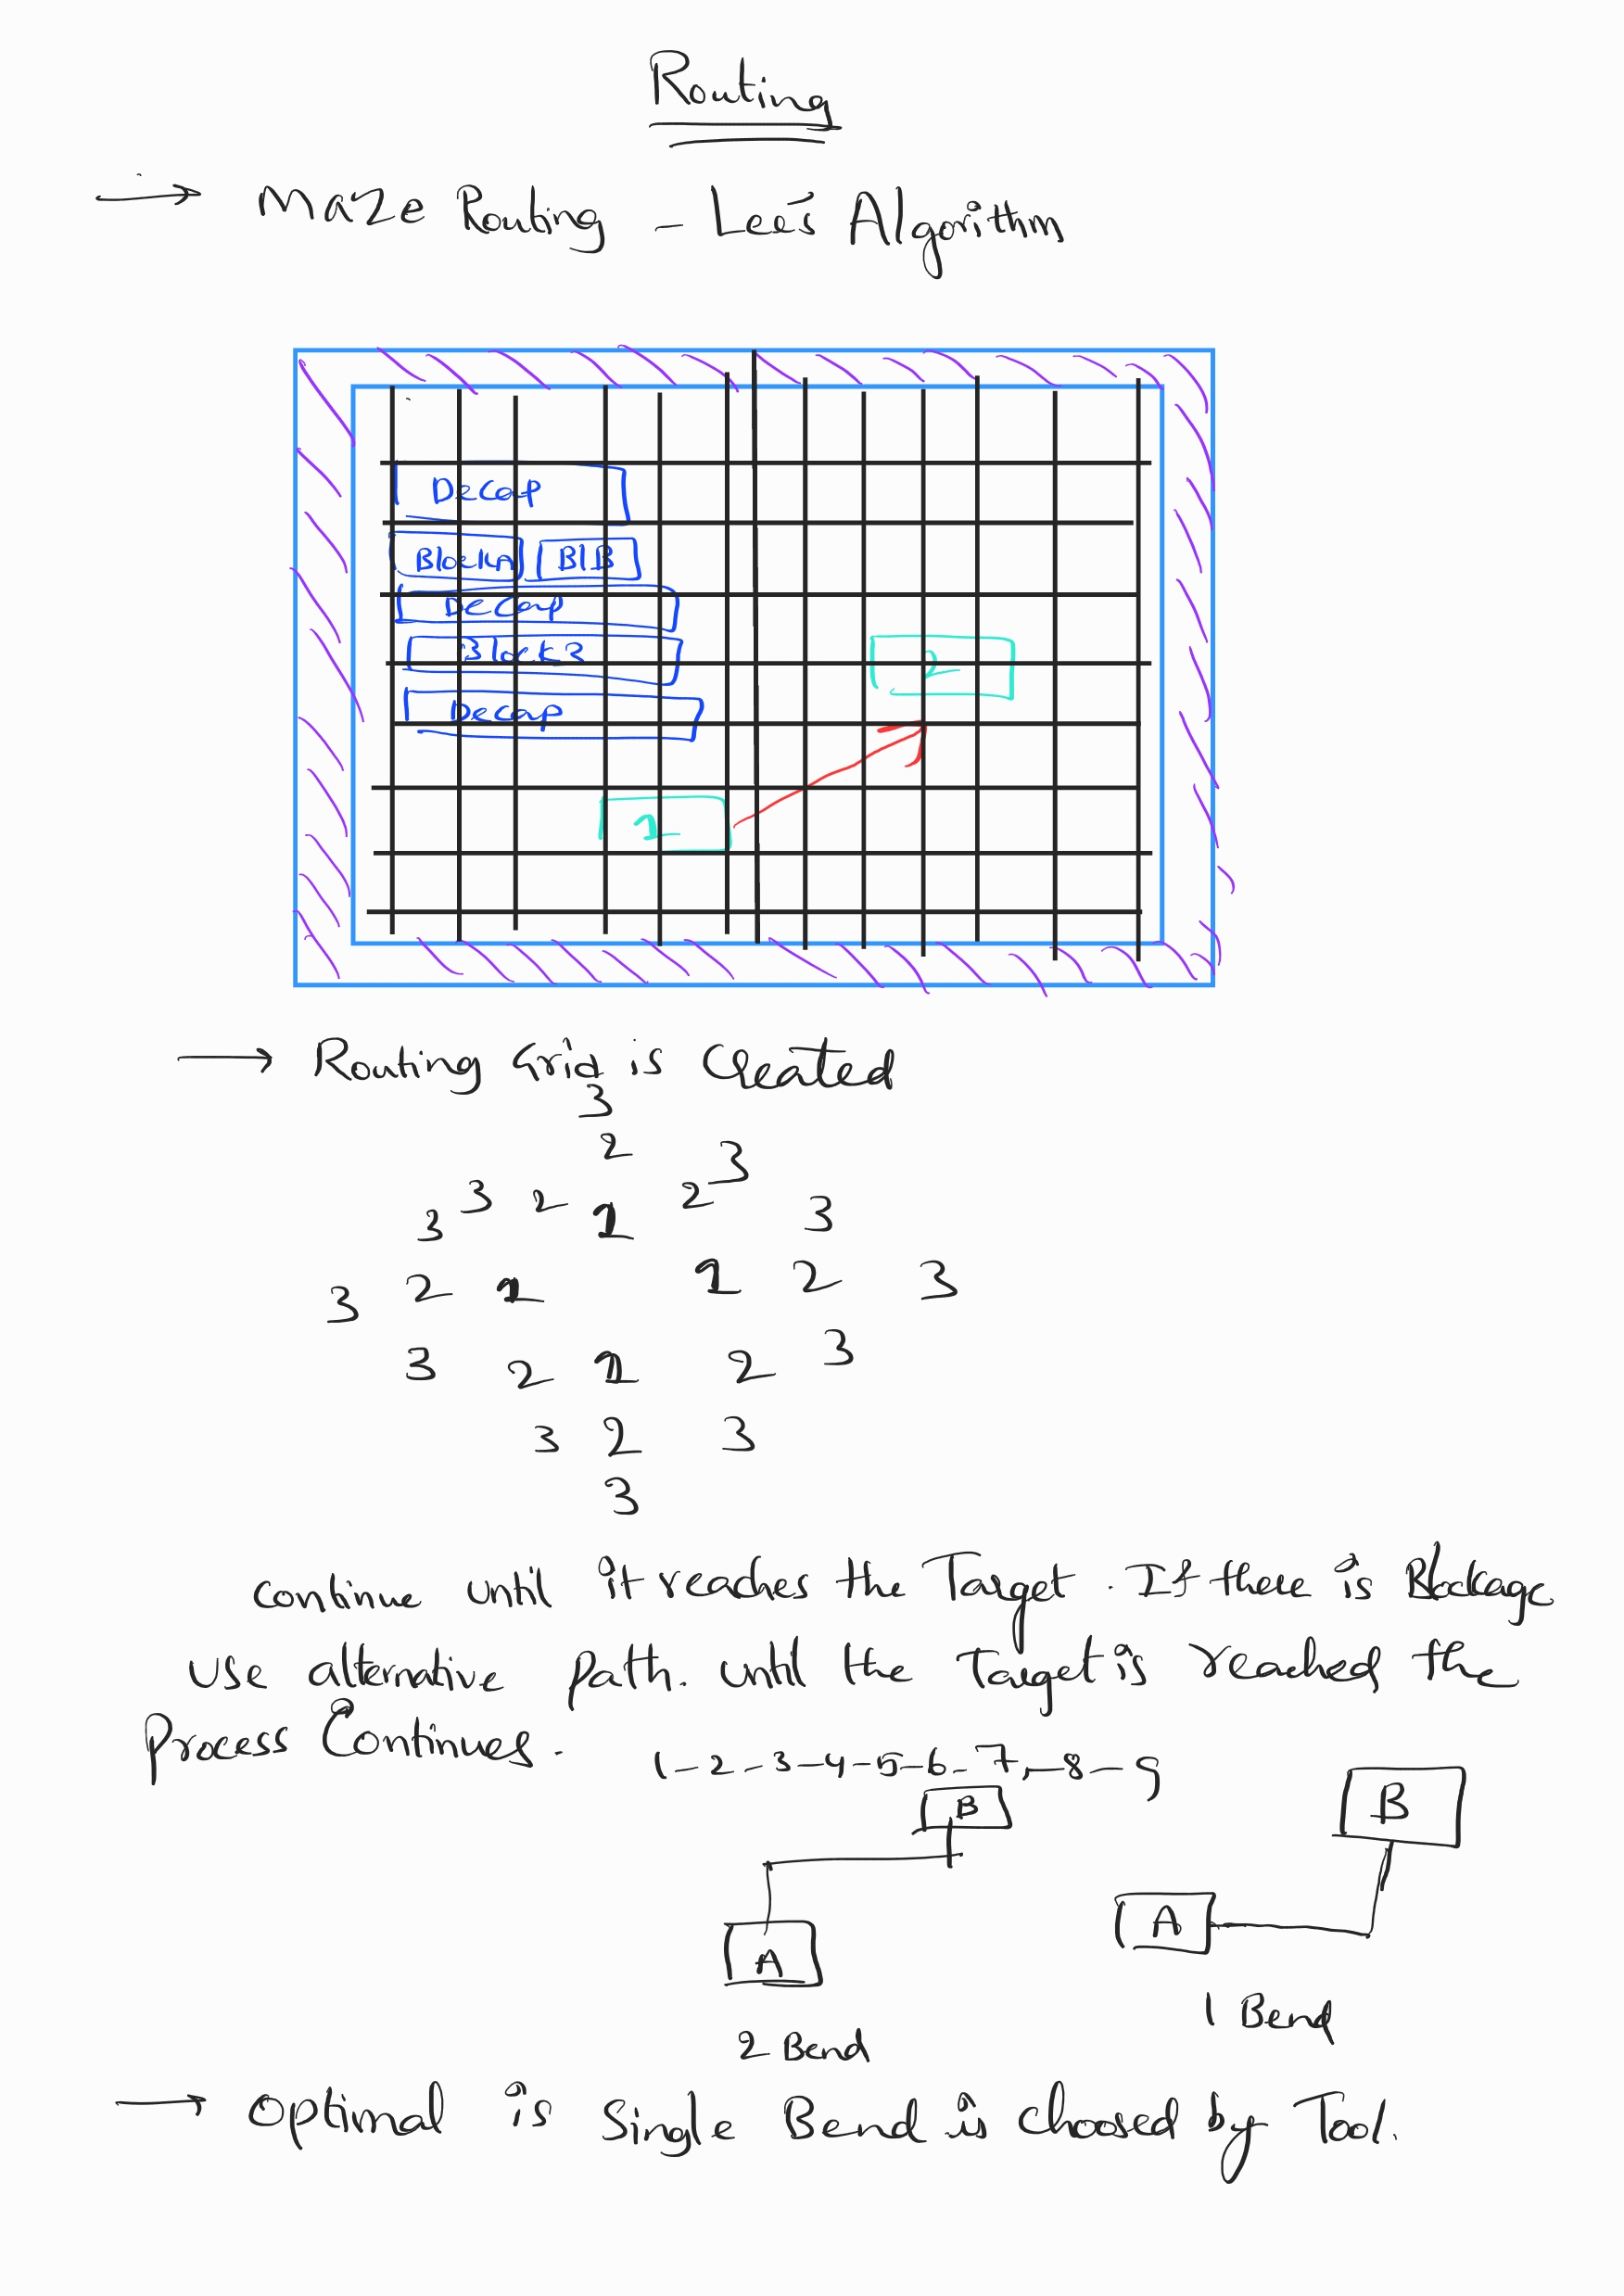 Routing
→ Maze Routing - Lee's Algorithm
Decap
BlockA BlB
Decap
Block3
2
Decap
1
→ Routing Grid is Created
3
2
3
3 2 1 2
3 3
3 2 1 1 2 3
3 2 1 2 3
3 2 3
3
continue until it reaches the Target. If there is Blockage
use alternative path. until the Target is reached the
Process Continues.
1-2-3-4-5-6-7-8-9
B
B
A
A
1 Bend
2 Bend
→ Optimal is Single Bend is choosed by Tool.